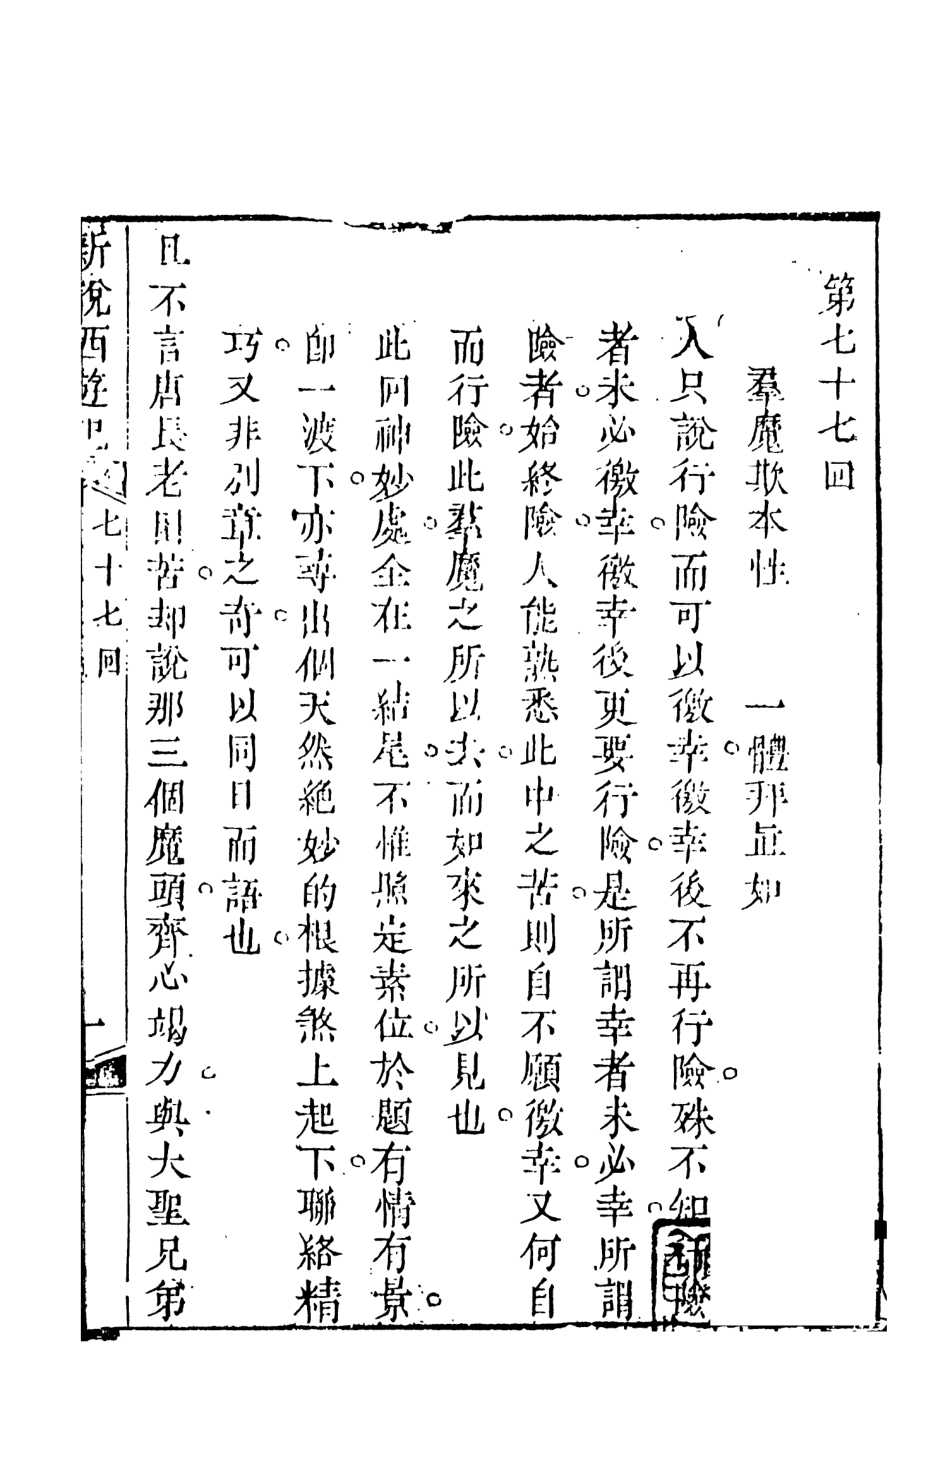 第七十七回
羣魔欺本性　一體拜眞如
人只說行險而可以徼幸徼幸後不再行險殊不知行險
者未必徼幸徼幸後更要行險是所謂幸者未必幸所謂
險者始終險人能熟悉此中之苦則自不願徼幸又何自
而行險此羣魔之所以去而如來之所以見也
此回神妙處全在一結尾不惟照定素位於題有情有景
卽一波下亦尋出個天然絶妙的根據煞上起下聯絡精
巧又非別章之奇可以同日而語也
且不言唐長老困苦却說那三個魔頭齊心竭力與大聖兄弟
新說西遊記
七十七回
一